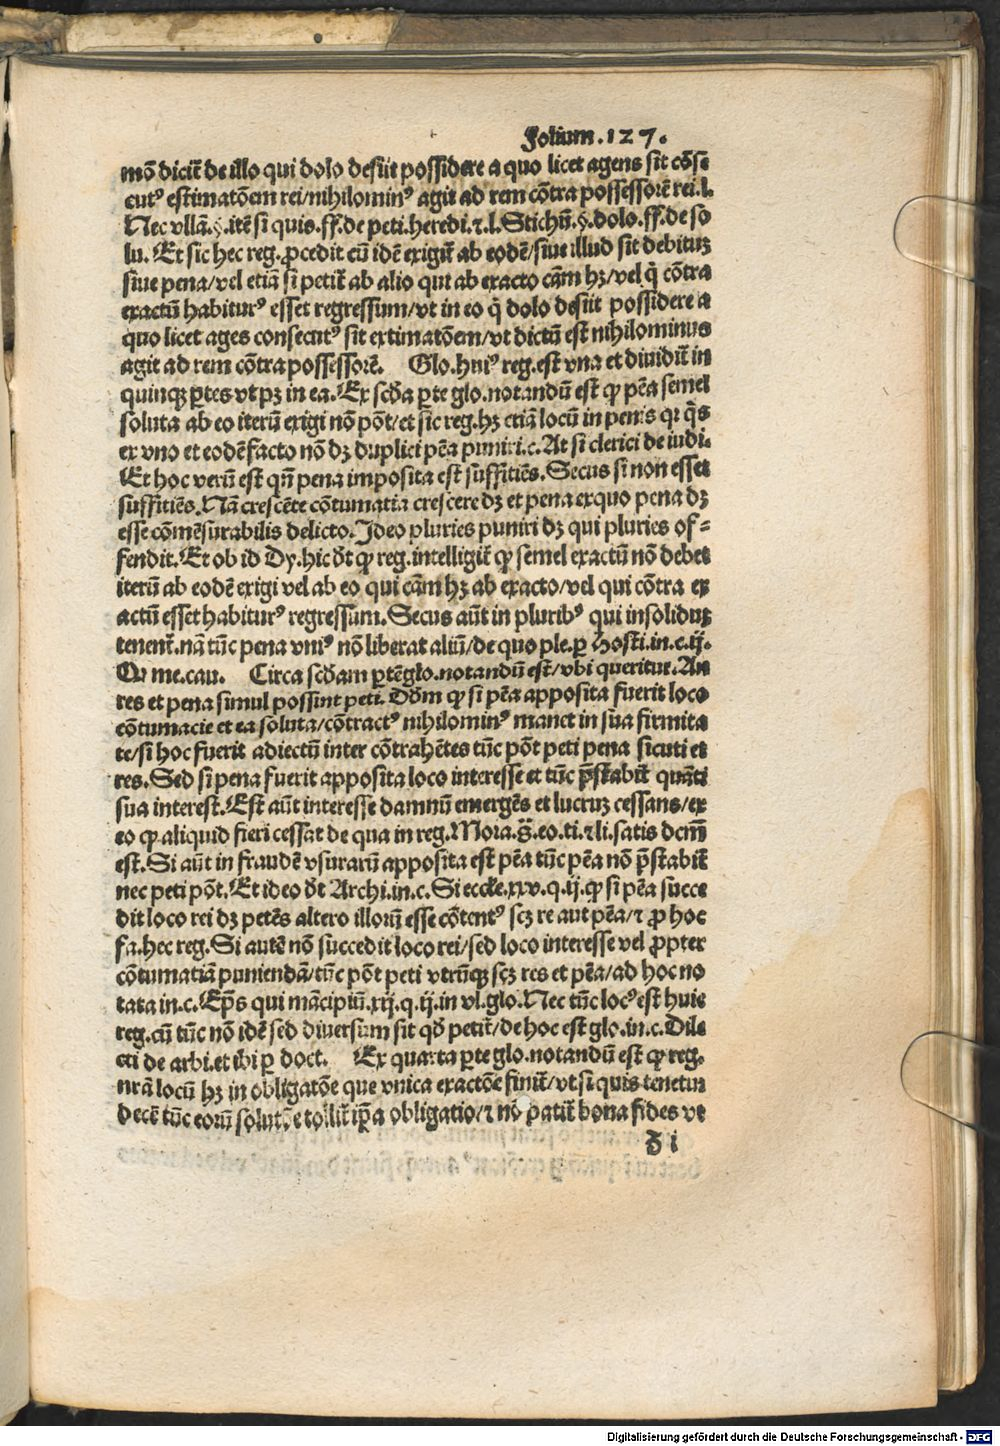 Folium.127.
mõ dicit̃ de illo qui dolo desijt possidere a quo licet agens sit cõse
cutꝰ estimatõem rei/nihilominꝰ agit ad rem cõtra possessorẽ rei.l.
Nec vllã.§.itẽ si quis.ff.de peti.heredi.⁊.l.Stichũ.§.dolo.ff.de so
lu. Et sic hec reg.ꝓcedit cũ idẽ exigit̃ ab eodẽ/siue illud sit debitũ
siue pena/vel etiã si petit̃ ab alio qui ab exacto cãm hꝫ/vel q̇ cõtra
exactũ habiturꝰ esset regressum/vt in eo q̇ dolo desijt possidere a
quo licet agẽs consecutꝰ sit extimatõem/vt dictũ est nihilominus
agit ad rem cõtra possessorẽ. Glo.huiꝰ reg.est vna et diuidit̃ in
quinqꝫ ꝑtes vt pꝫ in ea. Ex scd̃a ꝑte glo.notandũ est ꝙ pẽa semel
soluta ab eo iterũ exigi nõ põt/et sic reg.hꝫ etiã locũ in penis qꝛ q̇s
ex vno et eodẽ facto nõ dꝫ duplici pẽa puniri.c.At si clerici de iudi.
Et hoc verũ est qñ pena imposita est suffitiẽs. Secus si non esset
suffitiẽs. Nã crescẽte cõtumatia crescere dꝫ et pena exquo pena dꝫ
esse cõmẽsurabilis delicto. Ideo pluries puniri dꝫ qui pluries of⸗
fendit. Et ob id Dy.hic dt̃ ꝙ reg.intelligit̃ ꝙ semel exactũ nõ debet
iterũ ab eodẽ exigi vel ab eo qui cãm hꝫ ab exacto/vel qui cõtra ex
actũ esset habiturꝰ regressum. Secus aũt in pluribꝰ qui insolidum
tenent̃. nã tũc pena vniꝰ nõ liberat aliũ/de quo ple.ꝑ Hosti.in.c.ij.
Qđ me.cau. Circa scd̃am ꝑtẽ glo.notandũ est/vbi queritur. An
res et pena simul possint peti. Dd̃m ꝙ si pẽa apposita fuerit loco
cõtumacie et ea soluta/cõtractꝰ nihilominꝰ manet in sũa firmita
te/si hoc fuerit adiectũ inter cõtrahẽtes tũc põt peti pena sicuti et
res. Sed si pena fuerit apposita loco interesse et tũc p̃stabit̃ quãti
sua interest. Est aũt interesse damnũ emergẽs et lucrum cessans/ex
eo ꝙ aliquid fieri cessat de qua in reg.Mora.§.eo.ti.⁊ li.satis dcm̃
est. Si aũt in fraudẽ vsurarũ apposita est pẽa tũc pẽa nõ p̃stabit̃
nec peti põt. Et ideo dt̃ Archi.in.c.Si eccl̃e.xxv.q.ij.ꝙ si pẽa succe
dit loco rei dꝫ petẽs altero illorũ esse cõtentꝰ scꝫ re aut pẽa/⁊ ꝓ hoc
fa.hec reg. Si autẽ nõ succedit loco rei/sed loco interesse vel ꝓpter
cõtumatiã puniendã/tũc põt peti vtrũqꝫ scꝫ res et pẽa/ad hoc no
tata in.c.Ep̃s qui mãcipiũ.xij.q.ij.in vl.glo. Nec tũc locꝰ est huic
reg.cũ tũc nõ idẽ sed diuersum sit qd̃ petit̃/de hoc est glo.in.c.Dile
cti de arbi.et ibi ꝑ doct. Ex quarta ꝑte glo.notandũ est ꝙ reg.
nr̃a locũ hꝫ in obligatõe que vnica exactõe finit̃/vt si quis tenetur
decẽ tũc eorũ solutõe tollit̃ ip̃a obligatio/⁊ nõ patit̃ bona fides vt
ẟ i
Digitalisierung gefördert durch die Deutsche Forschungsgemeinschaft - DFG